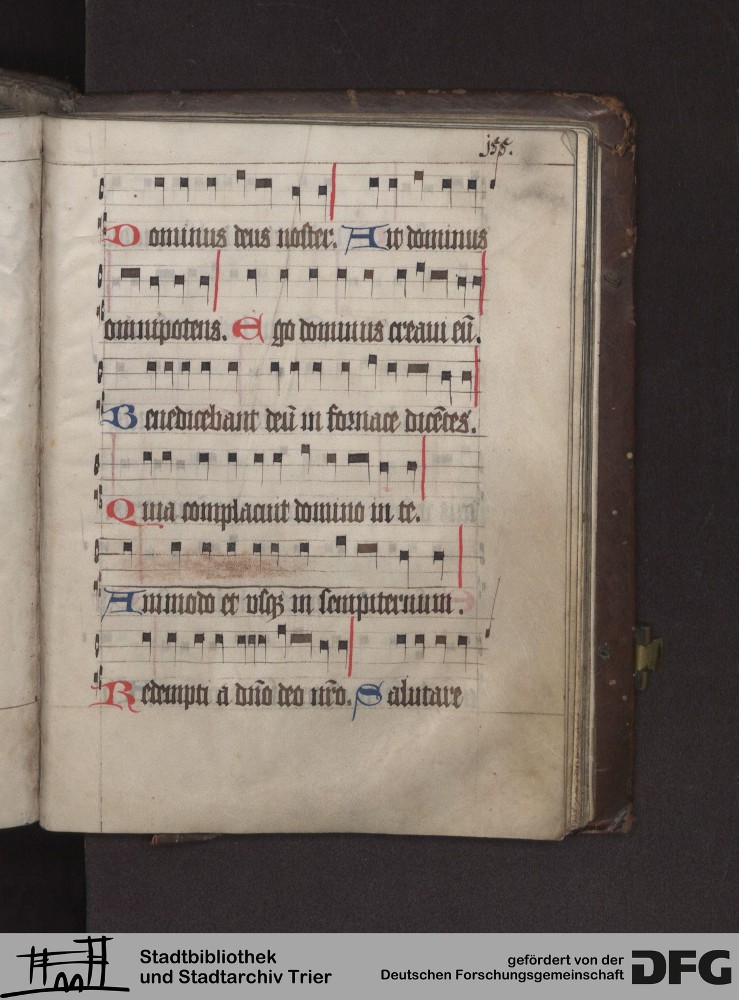 j55.
Dominus deus noster. Ait dominus
omnipotens. Ego dominus creaui eū.
Benedicebant deū in fornace dicētes.
Quia complacuit domino in te.
Ammodo et vsqꝫ in sempiternum.
Redempti a dn̄o deo nr̄o. Salutare
Stadtbibliothek
und Stadtarchiv Trier
gefördert von der
Deutschen Forschungsgemeinschaft
DFG